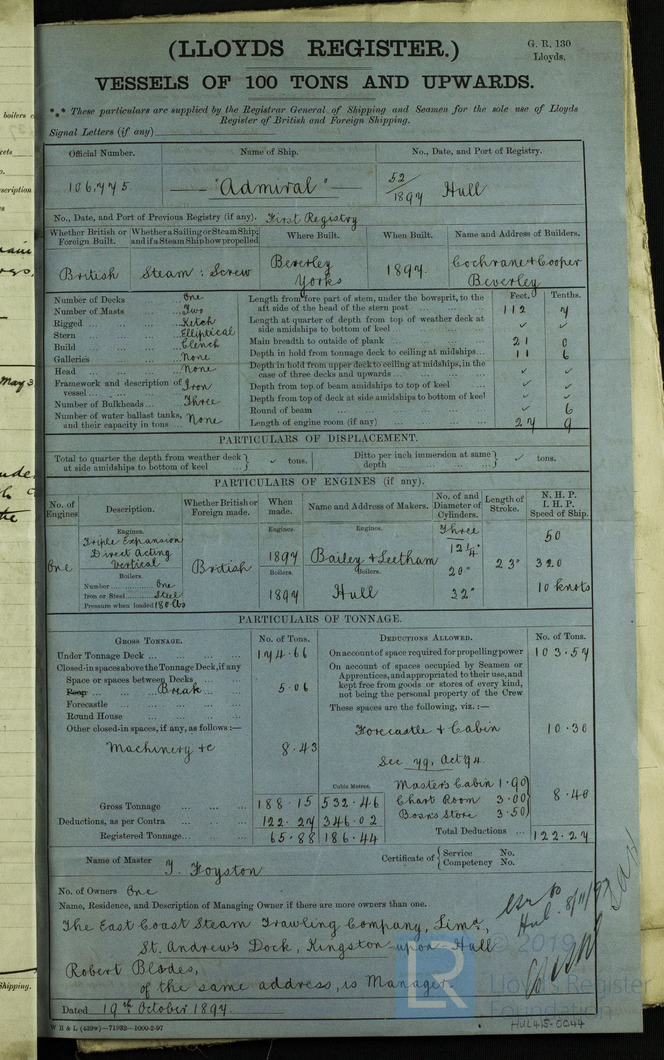 (LLOYDS REGISTER.)
G. R. 130
Lloyds.
VESSELS OF 100 TONS AND UPWARDS.
*⁎* These particulars are supplied by the Registrar General of Shipping and Seamen for the sole use of Lloyds
Register of British and Foreign Shipping.
Signal Letters (if any)
Official Number. Name of Ship. No., Date, and Port of Registry.
106,775 "Admiral" 52/1897 Hull
No., Date, and Port of Previous Registry (if any). First Registry
Whether British or Foreign Built. Whether a Sailing or Steam Ship; and if a Steam Ship how propelled Where Built. When Built. Name and Address of Builders.
British Steam : Screw Beverley Yorks 1897. Cochrane & Cooper Beverley
Number of Decks ... One
Number of Masts ... Two
Rigged ... Ketch
Stern ... Elliptical
Build ... Clench
Galleries ... None
Head ... None
Framework and description of vessel ... Iron
Number of Bulkheads ... Three
Number of water ballast tanks, and their capacity in tons None
Feet. Tenths.
Length from fore part of stem, under the bowsprit, to the
aft side of the head of the stern post ... 112 7
Length at quarter of depth from top of weather deck at
side amidships to bottom of keel ... ✓ ✓
Main breadth to outside of plank ... 21 0
Depth in hold from tonnage deck to ceiling at midships... 11 6
Depth in hold from upper deck to ceiling at midships, in the
case of three decks and upwards ... ✓ ✓
Depth from top of beam amidships to top of keel ... ✓ ✓
Depth from top of deck at side amidships to bottom of keel ✓ ✓
Round of beam ... ✓ 6
Length of engine room (if any) ... 27 9
PARTICULARS OF DISPLACEMENT.
Total to quarter the depth from weather deck at side amidships to bottom of keel ... ✓ tons. Ditto per inch immersion at same depth ... ✓ tons.
PARTICULARS OF ENGINES (if any).
No. of Engines Description. Whether British or Foreign made. When made. Name and Address of Makers. No. of and Diameter of Cylinders. Length of Stroke. N. H. P. I. H. P. Speed of Ship.
One
Engines.
Triple Expansion
Direct Acting
Vertical
Boilers.
Number ... One
Iron or Steel ... Steel
Pressure when loaded 180 lbs
British
Engines.
1897
Boilers.
1897
Engines.
Bailey & Leetham
Boilers.
Hull
Three
12¼"
20"
32"
23"
50
320
10 knots
PARTICULARS OF TONNAGE.
GROSS TONNAGE. No. of Tons.
Under Tonnage Deck ... 174.66
Closed-in spaces above the Tonnage Deck, if any
Space or spaces between Decks
Poop ... Break ... 5.06
Forecastle ...
Round House ...
Other closed-in spaces, if any, as follows :—
Machinery &c 8.43
Cubic Metres.
Gross Tonnage ... 188.15 532.46
Deductions, as per Contra ... 122.27 346.02
Registered Tonnage... 65.88 186.44
DEDUCTIONS ALLOWED. No. of Tons.
On account of space required for propelling power 103.57
On account of spaces occupied by Seamen or
Apprentices, and appropriated to their use, and
kept free from goods or stores of every kind,
not being the personal property of the Crew
These spaces are the following, viz. :—
Forecastle & Cabin 10.30
Sec 79, Act 94.
Master's Cabin 1.90
Chart Room 3.00
Bosn's Store 3.50
8.40
Total Deductions ... 122.27
Name of Master T. Foyston
Certificate of Service No. Competency No.
No. of Owners One
Name, Residence, and Description of Managing Owner if there are more owners than one.
The East Coast Steam Trawling Company, Limd,
St. Andrew's Dock, Kingston upon Hull
Robert Blades,
of the same address, is Manager.
Hul. 8/11/97
Dated 19th October 1897.
W B & L (439w)—71932—1000-2-97
HUL415-0044
LR
© 2019
Lloyd's Register
Foundation
boilers
May 3
Shipping.